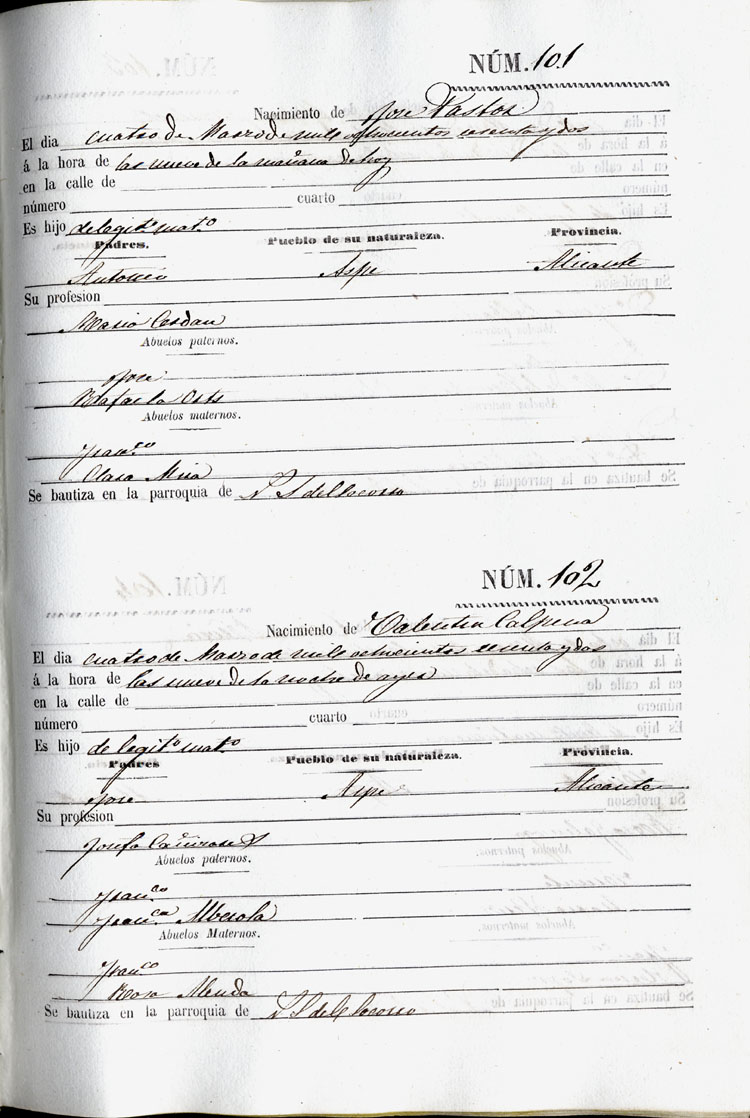 NÚM. 101
Nacimiento de Jose Pastor
El dia cuatro de Marzo de mil ochocientos sesenta y dos
á la hora de las nueve de la mañana de hoy
en la calle de
número cuarto
Es hijo de legit.º mat.º
Padres. Pueblo de su naturaleza. Provincia.
Antonio Aspe Alicante
Su profesion
Maria Cerdan
Abuelos paternos.
Jose
Rafaela Orts
Abuelos maternos.
Fran.co
Clara Mira
Se bautiza en la parroquia de N. S. del Socorro
NÚM. 102
Nacimiento de Valentin Calpena
El dia cuatro de Marzo de mil ochocientos sesenta y dos
á la hora de las nueve de la noche de ayer
en la calle de
número cuarto
Es hijo de legit.º mat.º
Padres Pueblo de su naturaleza. Provincia.
Jose Aspe Alicante
Su profesion
Josefa Cañizares
Abuelos paternos.
Fran.co
Fran.ca Alberola
Abuelos Maternos.
Fran.co
Rosa Almodo
Se bautiza en la parroquia de N. S. del Socorro